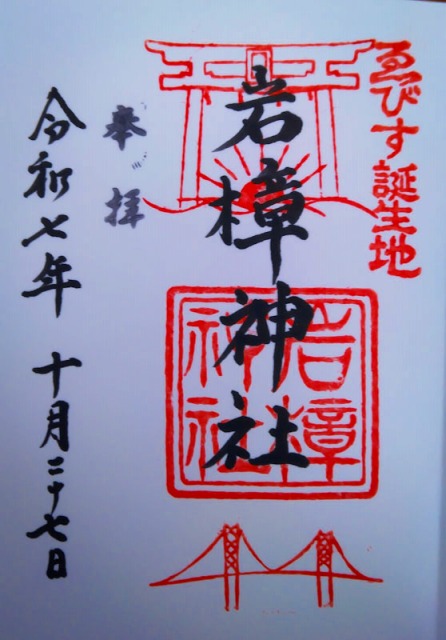 ゑびす誕生地
岩樟神社
岩樟
神社
奉拝
令和七年 十月二十七日